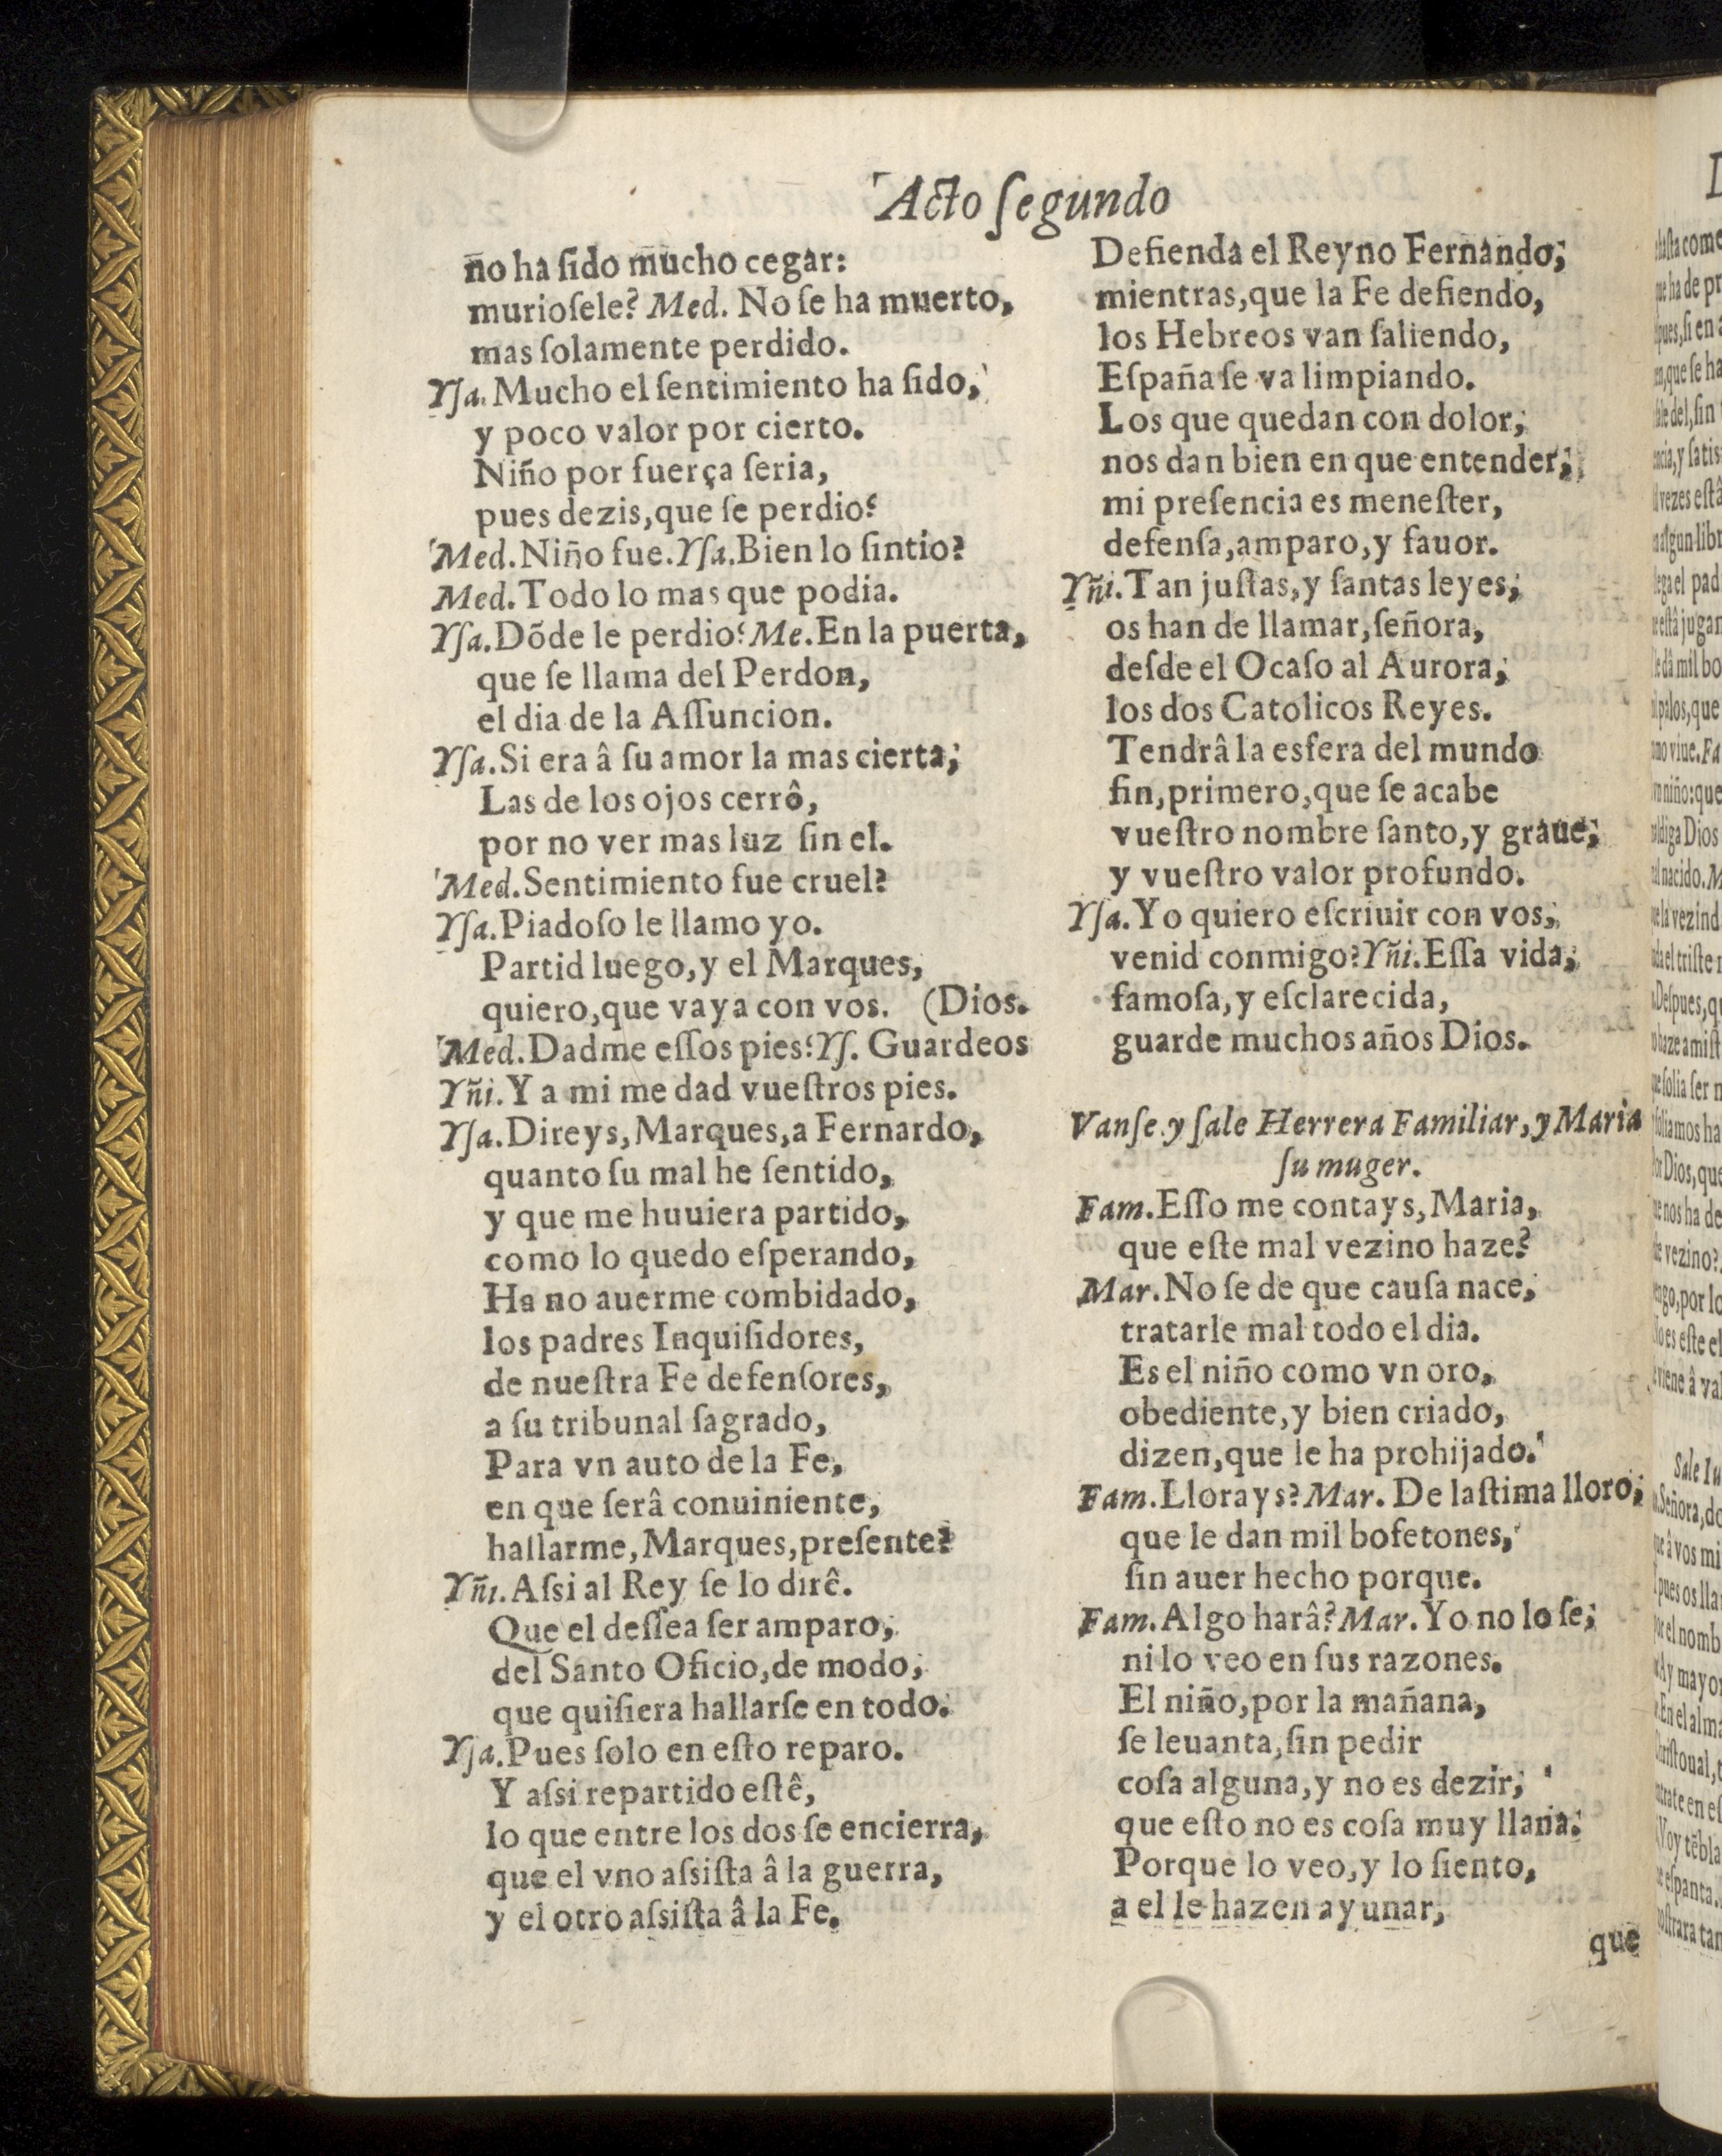 Acto ſegundo
no ha ſido mucho cegar:
murioſele? Med. No ſe ha muerto,
mas ſolamente perdido.
Yſa. Mucho el ſentimiento ha ſido,
y poco valor por cierto.
Niño por fuerça ſeria,
pues dezis, que ſe perdio?
Med. Niño fue. Yſa. Bien lo ſintio?
Med. Todo lo mas que podia.
Yſa. Dõde le perdio? Me. En la puerta,
que ſe llama del Perdon,
el dia de la Aſſuncion.
Yſa. Si era â ſu amor la mas cierta;
Las de los ojos cerrô,
por no ver mas luz ſin el.
Med. Sentimiento fue cruel?
Yſa. Piadoſo le llamo yo.
Partid luego, y el Marques,
quiero, que vaya con vos. (Dios.
Med. Dadme eſſos pies? Yſ. Guardeos
Yñi. Y a mi me dad vueſtros pies.
Yſa. Direys, Marques, a Fernardo,
quanto ſu mal he ſentido,
y que me huuiera partido,
como lo quedo eſperando,
Ha no auerme combidado,
los padres Inquiſidores,
de nueſtra Fe defenſores,
a ſu tribunal ſagrado,
Para vn auto de la Fe,
en que ſerâ conuiniente,
hallarme, Marques, preſente?
Yñi. Aſsi al Rey ſe lo dirê.
Que el deſſea ſer amparo,
del Santo Oficio, de modo,
que quiſiera hallarſe en todo.
Yſa. Pues ſolo en eſto reparo.
Y aſsi repartido eſtê,
lo que entre los dos ſe encierra,
que el vno aſsiſta â la guerra,
y el otro aſsiſta â la Fe.
Defienda el Reyno Fernando;
mientras, que la Fe defiendo,
los Hebreos van ſaliendo,
Eſpaña ſe va limpiando.
Los que quedan con dolor,
nos dan bien en que entender;
mi preſencia es meneſter,
defenſa, amparo, y fauor.
Yñi. Tan juſtas, y ſantas leyes,
os han de llamar, ſeñora,
deſde el Ocaſo al Aurora,
los dos Catolicos Reyes.
Tendrâ la esfera del mundo
fin, primero, que ſe acabe
vueſtro nombre ſanto, y graue;
y vueſtro valor profundo.
Yſa. Yo quiero eſcriuir con vos,
venid conmigo? Yñi. Eſſa vida,
famoſa, y eſclarecida,
guarde muchos años Dios.
Vanſe y ſale Herrera Familiar, y Maria
ſu muger.
Fam. Eſſo me contays, Maria,
que eſte mal vezino haze?
Mar. No ſe de que cauſa nace,
tratarle mal todo el dia.
Es el niño como vn oro,
obediente, y bien criado,
dizen, que le ha prohijado.
Fam. Llorays? Mar. De laſtima lloro;
que le dan mil bofetones,
ſin auer hecho porque.
Fam. Algo harâ? Mar. Yo no lo ſe;
ni lo veo en ſus razones.
El niño, por la mañana,
ſe leuanta, ſin pedir
coſa alguna, y no es dezir,
que eſto no es coſa muy llana:
Porque lo veo, y lo ſiento,
a el le hazen ayunar,
que